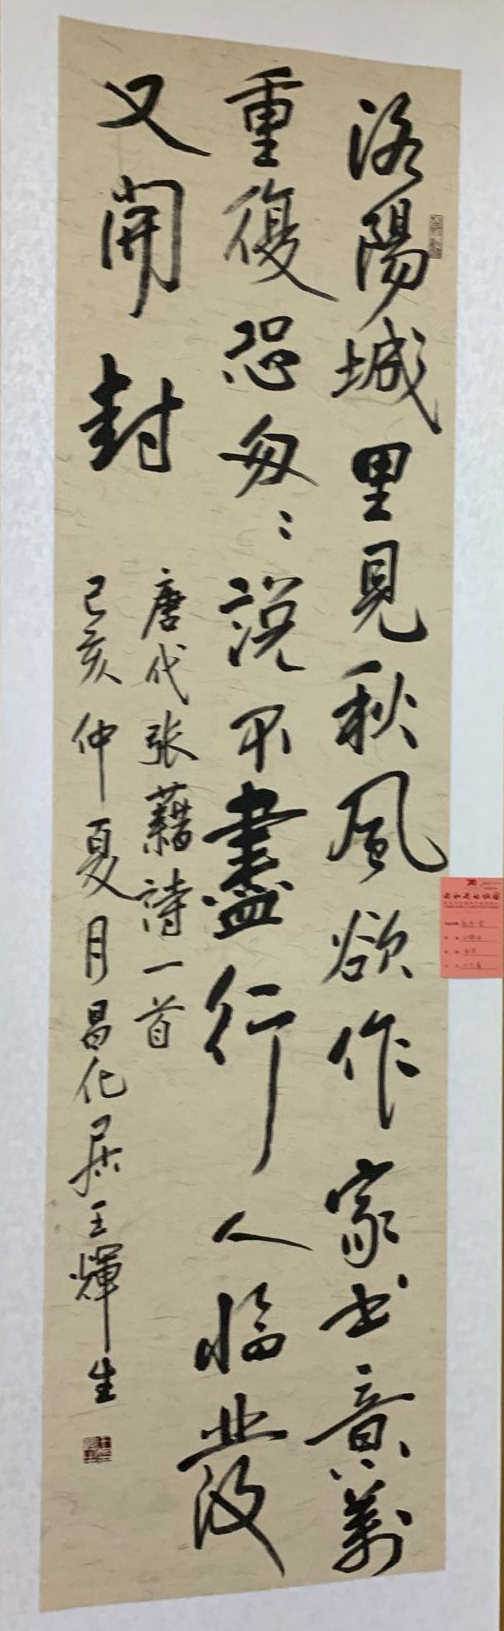 洛陽城里見秋風欲作家书意萬
重復恐匆〻説不盡行人临發
又開封
唐代张藉詩一首
己亥仲夏月昌化居王輝生